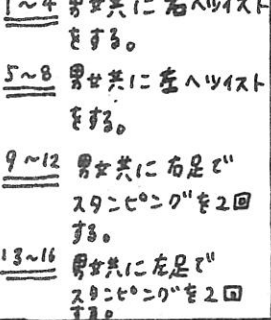 1~4 男女共に右へツイスト
をする。
5~8 男女共に左へツイスト
をする。
9~12 男女共に右足で
スタンピングを2回
する。
13~16 男女共に左足で
スタンピングを2回
する。